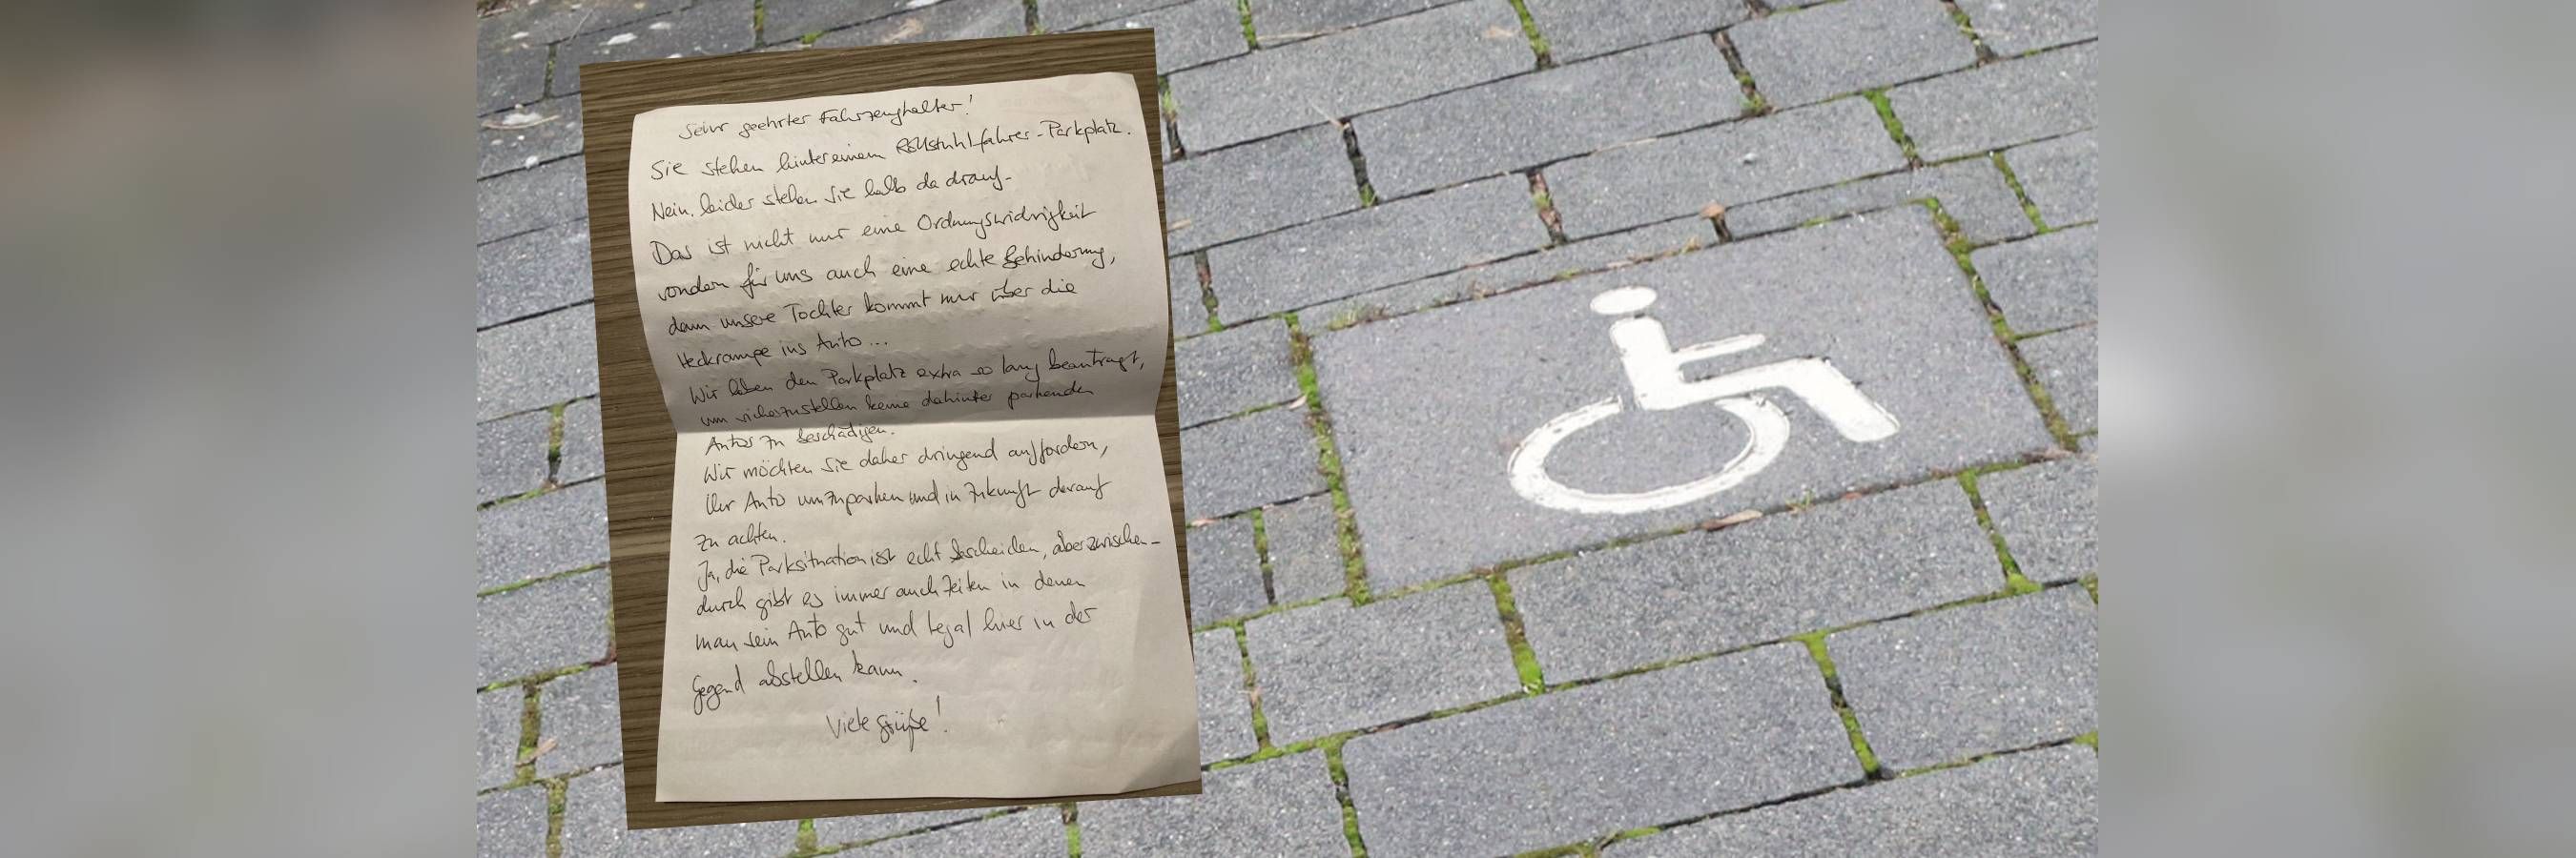 Sehr geehrter Fahrzeughalter!
Sie stehen hinter einem Rollstuhlfahrer-Parkplatz.
Nein, leider stehen Sie halb da drauf.
Das ist nicht nur eine Ordnungswidrigkeit
sondern für uns auch eine echte Behinderung,
denn unsere Tochter kommt nur über die
Heckrampe ins Auto...
Wir haben den Parkplatz extra so lang beantragt,
um sicherzustellen keine dahinter parkenden
Autos zu beschädigen.
Wir möchten Sie daher dringend auffordern,
Ihr Auto umzuparken und in Zukunft darauf
zu achten.
Ja, die Parksituation ist echt bescheiden, aber zwischen-
durch gibt es immer auch Zeiten in denen
man sein Auto gut und legal hier in der
Gegend abstellen kann.
Viele Grüße!